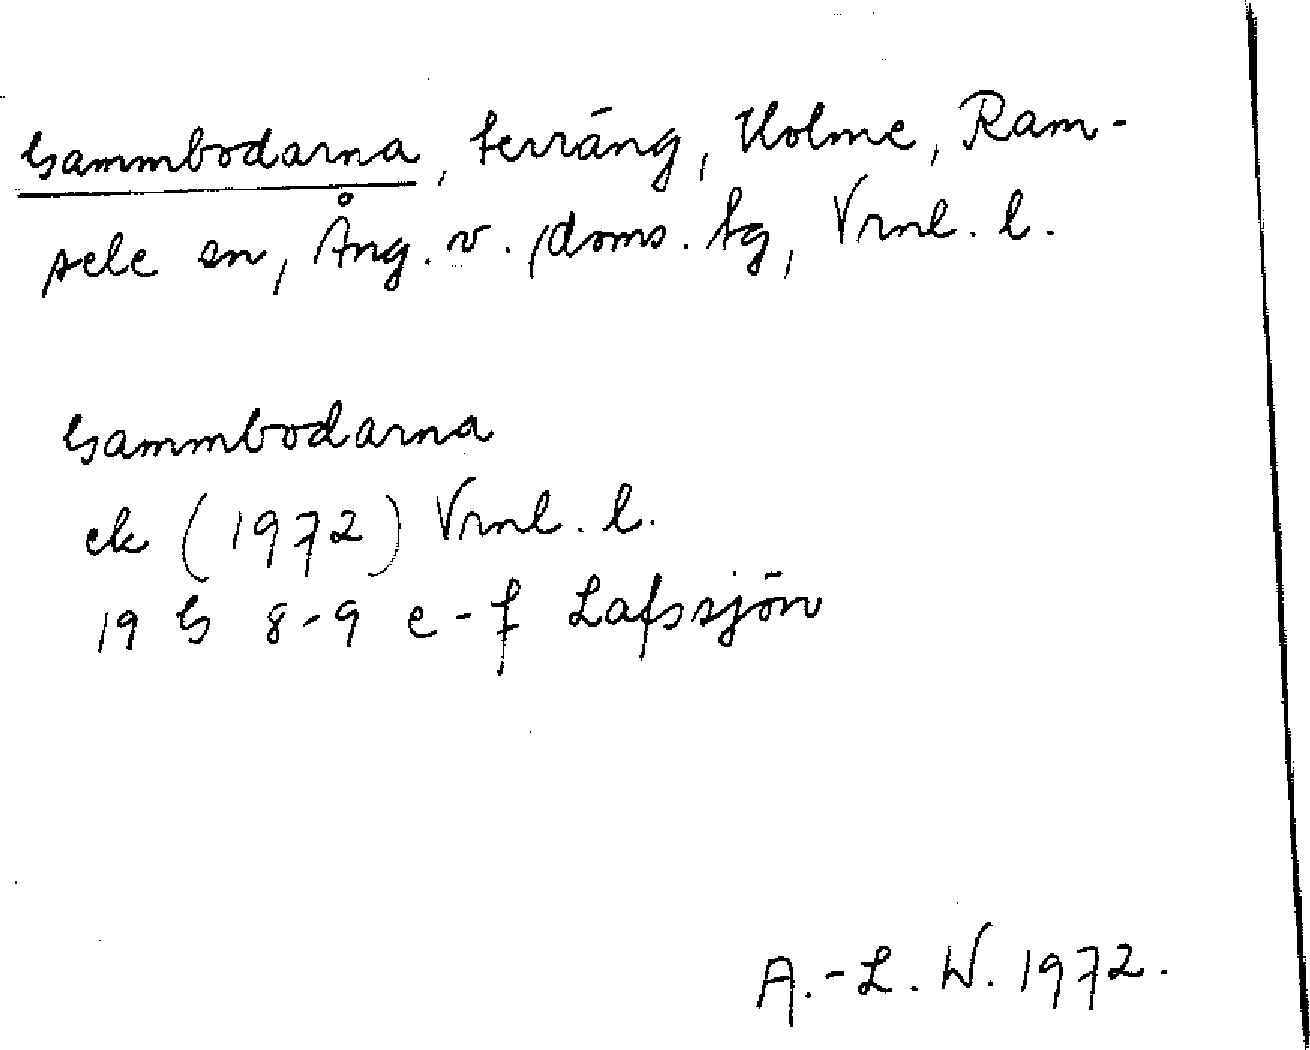 Gammbodarna, terräng, Holme, Ram-
sele sn, Ång. v. doms. tg, Vrnl. l.
Gammbodarna
ek (1972) Vrnl. l.
19 G 8-9 e-f Lafssjön
A.-L. W. 1972.